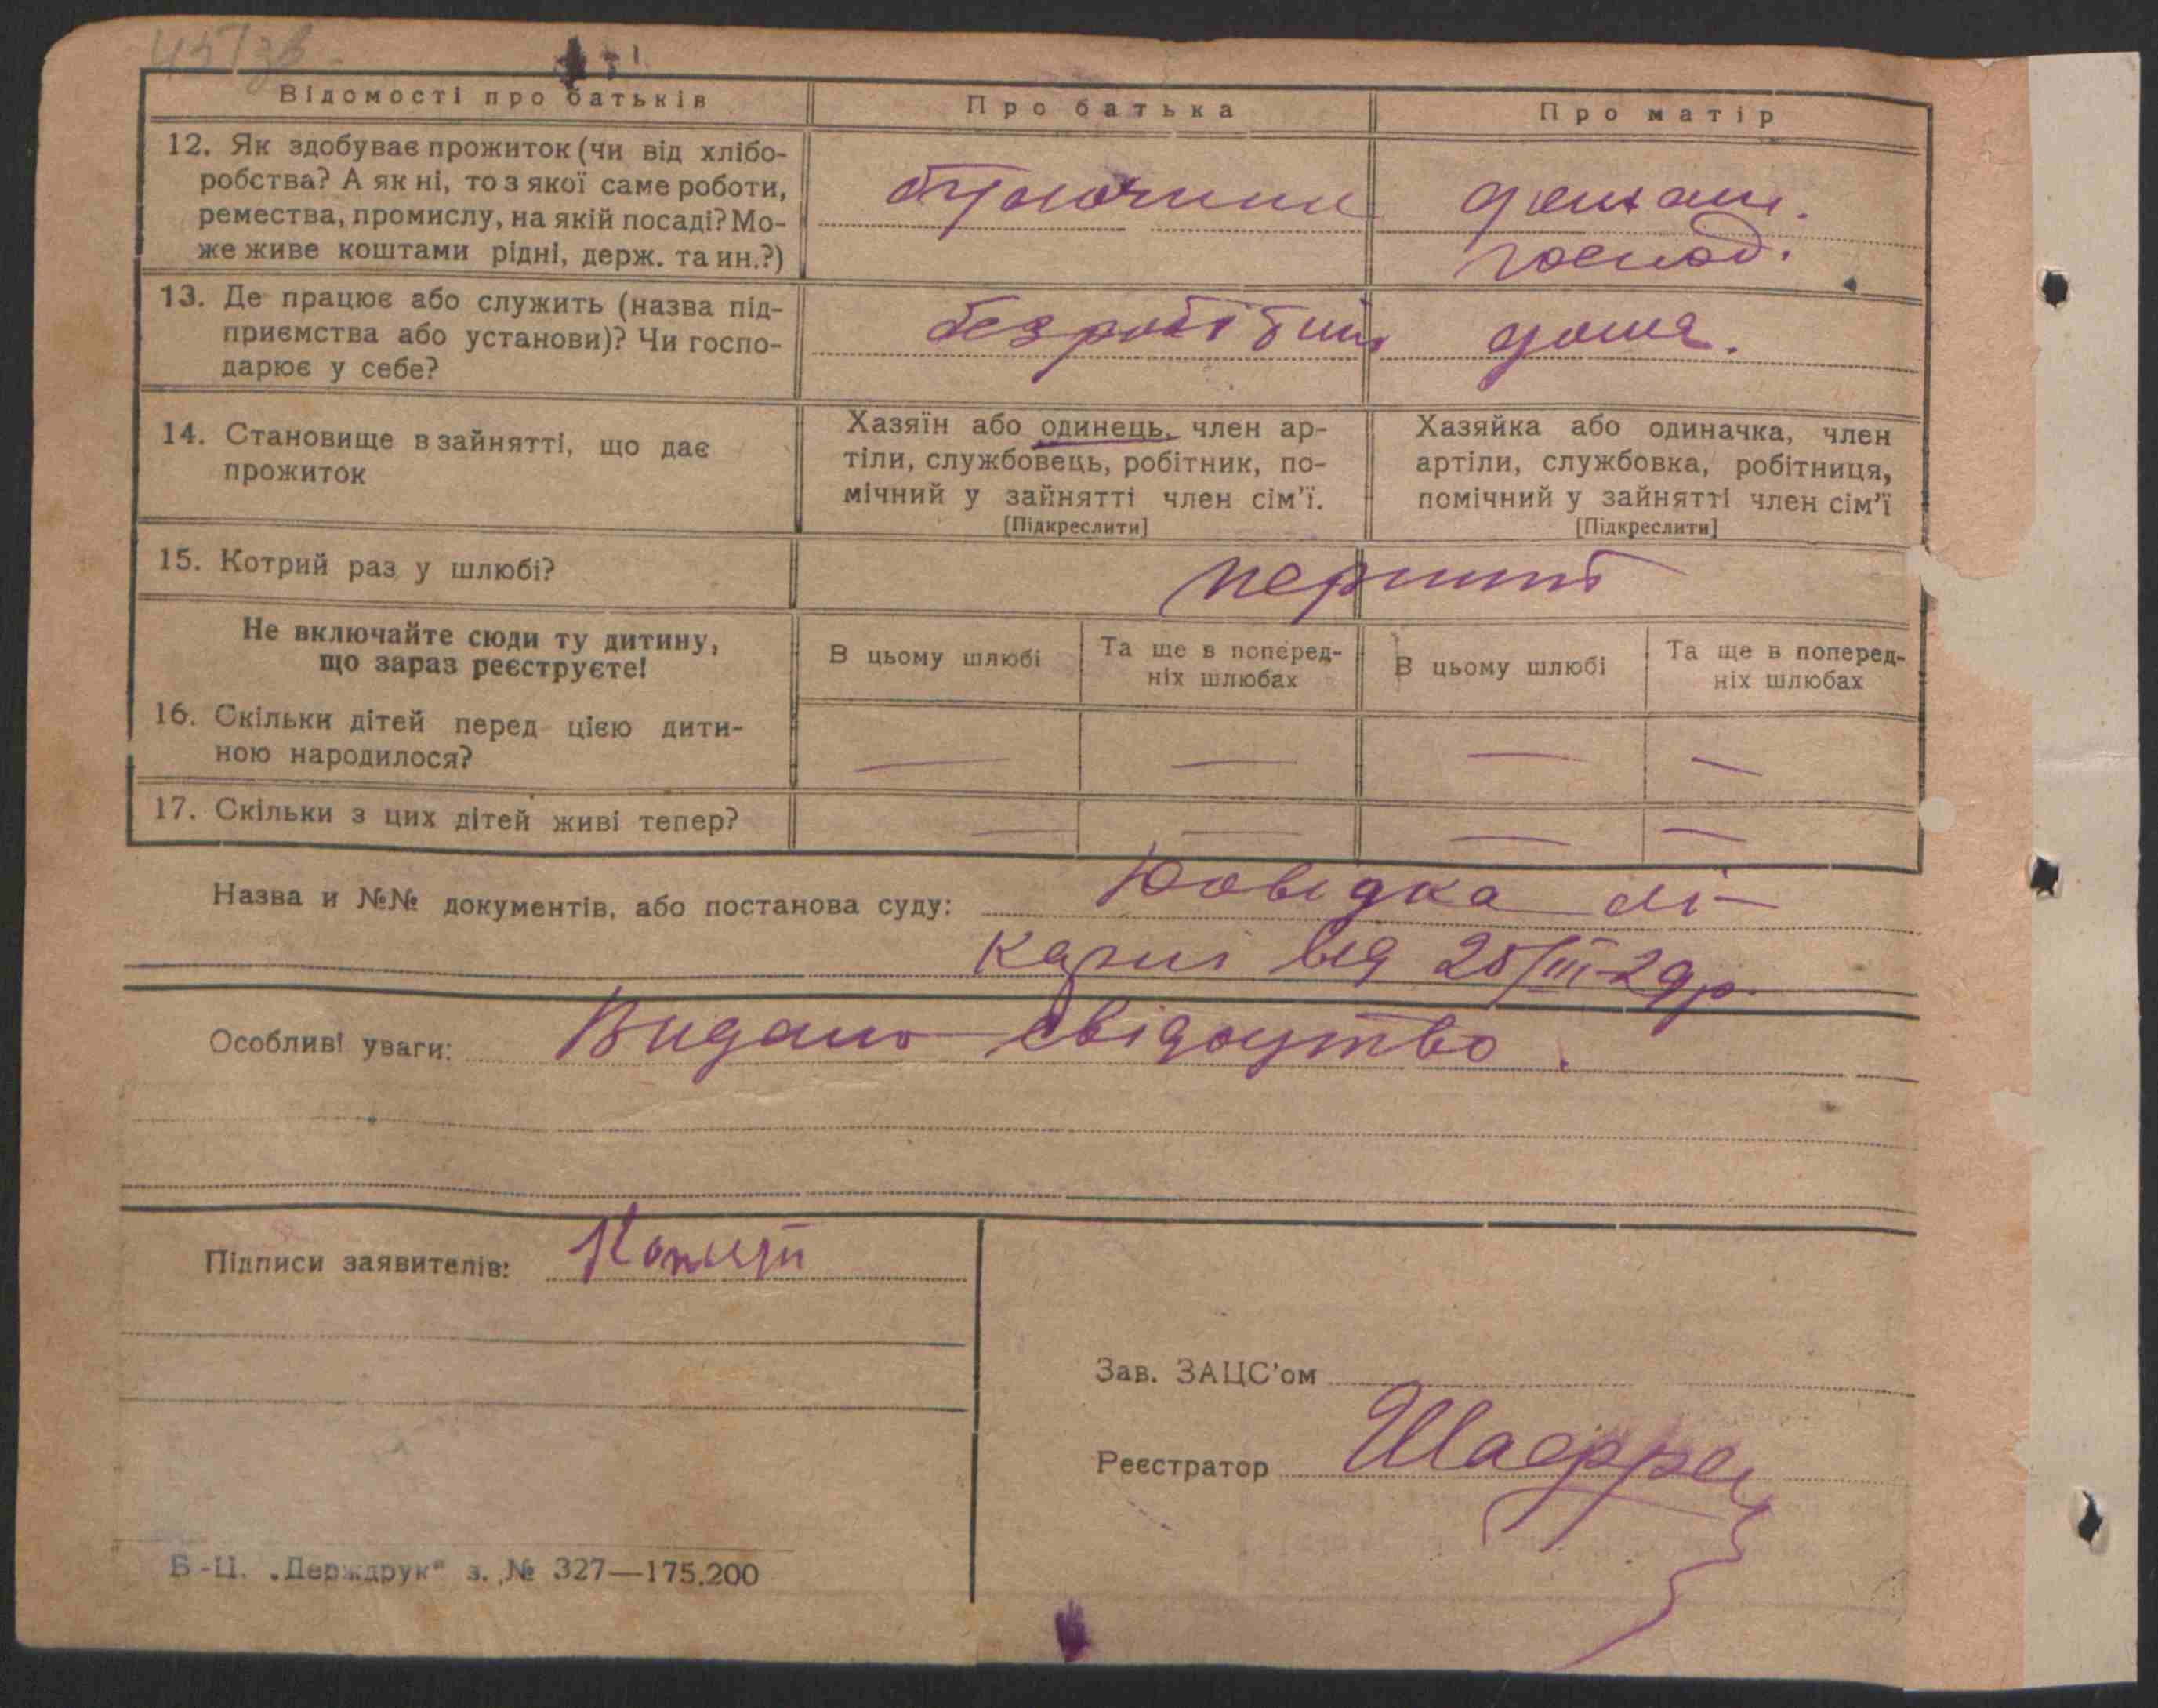 45/зв
Відомості про батьків
Про батька
Про матір
12. Як здобуває прожиток (чи від хлібо-
робства? А як ні, то з якої саме роботи,
ремества, промислу, на якій посаді? Мо-
же живе коштами рідні, держ. та ин.?)
домаш.
господ.
13. Де працює або служить (назва під-
приємства або установи)? Чи госпо-
дарює у себе?
безробітний
дома.
14. Становище в зайнятті, що дає
прожиток
Хазяїн або одинець, член ар-
тіли, службовець, робітник, по-
мічний у зайнятті член сім'ї.
[Підкреслити]
Хазяйка або одиначка, член
артіли, службовка, робітниця,
помічний у зайнятті член сім'ї
[Підкреслити]
15. Котрий раз у шлюбі?
перший
Не включайте сюди ту дитину,
що зараз реєструєте!
В цьому шлюбі
Та ще в поперед-
ніх шлюбах
В цьому шлюбі
Та ще в поперед-
ніх шлюбах
16. Скільки дітей перед цією дити-
ною народилося?
— — — —
17. Скільки з цих дітей живі тепер?
— — — —
Назва и №№ документів, або постанова суду: Довідка лі-
карні від 25/III-29р.
Особливі уваги: Видано свідоцтво.
Підписи заявителів:
Зав. ЗАЦС'ом
Реєстратор
Б-Ц. „Держдрук" з. № 327—175.200